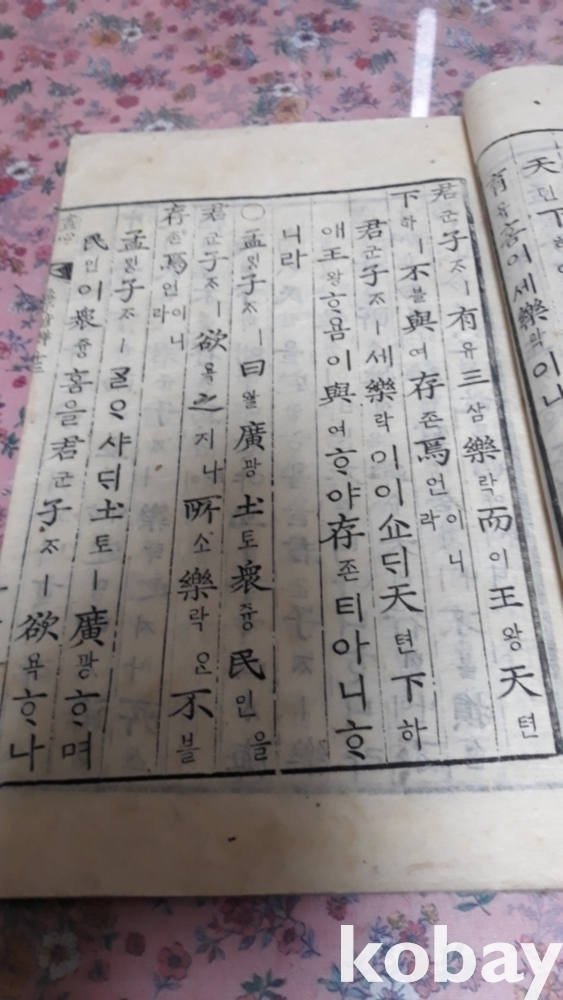 有유홈이세樂락이니
君군子ᄌᆞㅣ有유三삼樂락而이王왕天텬
下하ㅣ不불與여存존焉언이니라
君군子ᄌᆞㅣ세樂락이이쇼ᄃᆡ天텬下하
애王왕ᄒᆞ욤이與여ᄒᆞ야存존티아니ᄒᆞ
니라
○孟ᄆᆡᆼ子ᄌᆞㅣ曰왈廣광土토衆즁民민을
君군子ᄌᆞㅣ欲욕之지나所소樂락은不블
存존焉언이니라
孟ᄆᆡᆼ子ᄌᆞㅣᄀᆞᆯᄋᆞ샤ᄃᆡ土토ㅣ廣광ᄒᆞ며
民민이衆즁홈을君군子ᄌᆞㅣ欲욕ᄒᆞ나
kobay